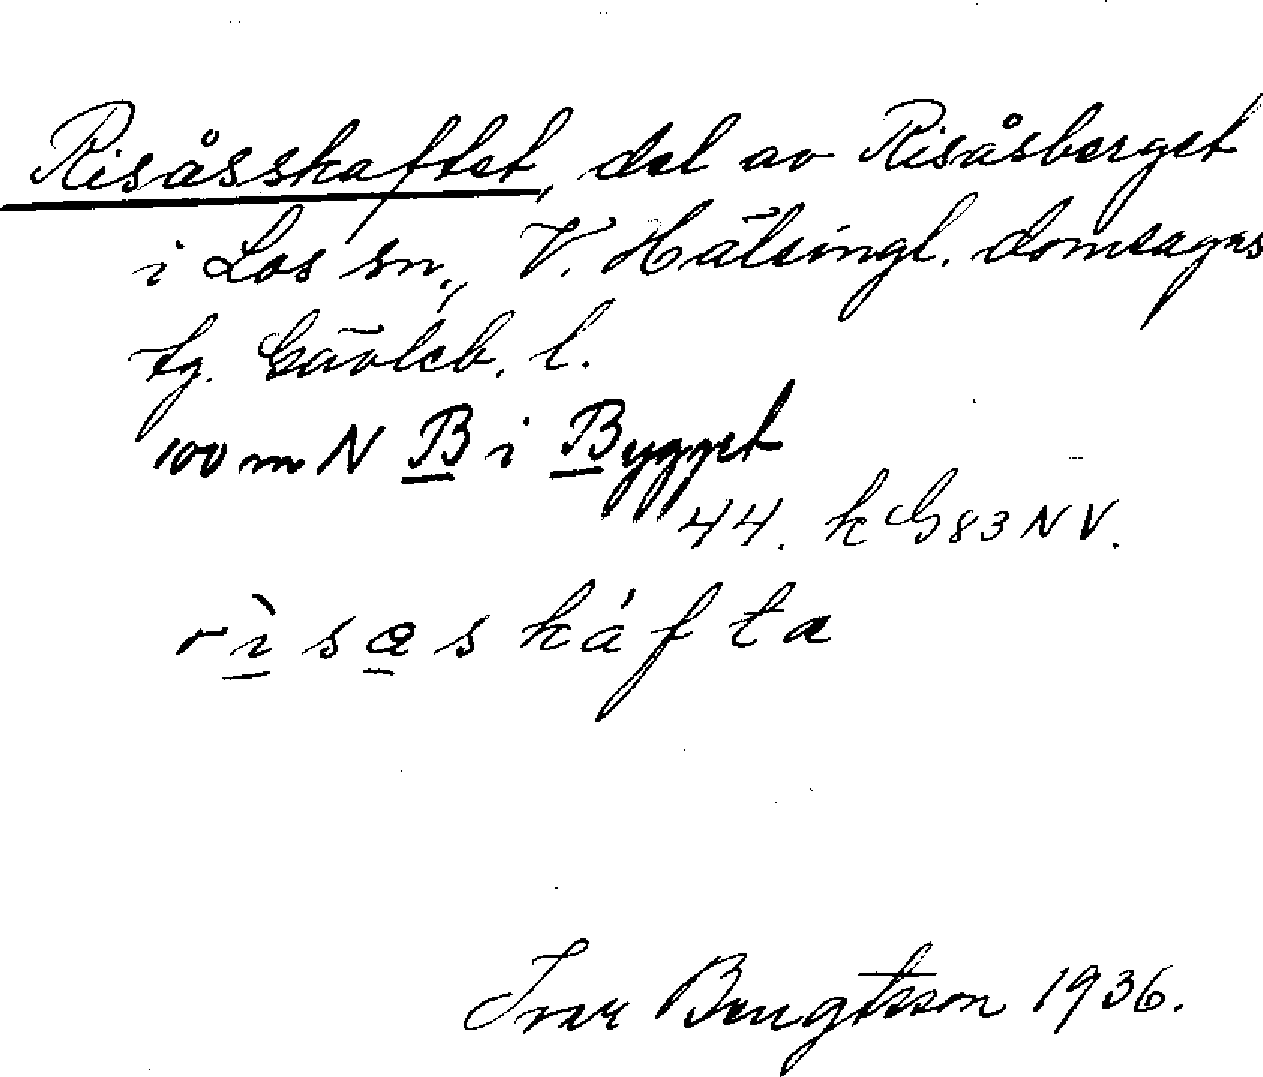 Risåsskaftet, del av Risåsberget
i Los sn., V. Hälsingl. domsagas
tg. Gävleb. l.
100 m N B i Bygget
44. k G83NV.
rìsaskáfta
Ivar Bengtsson 1936.